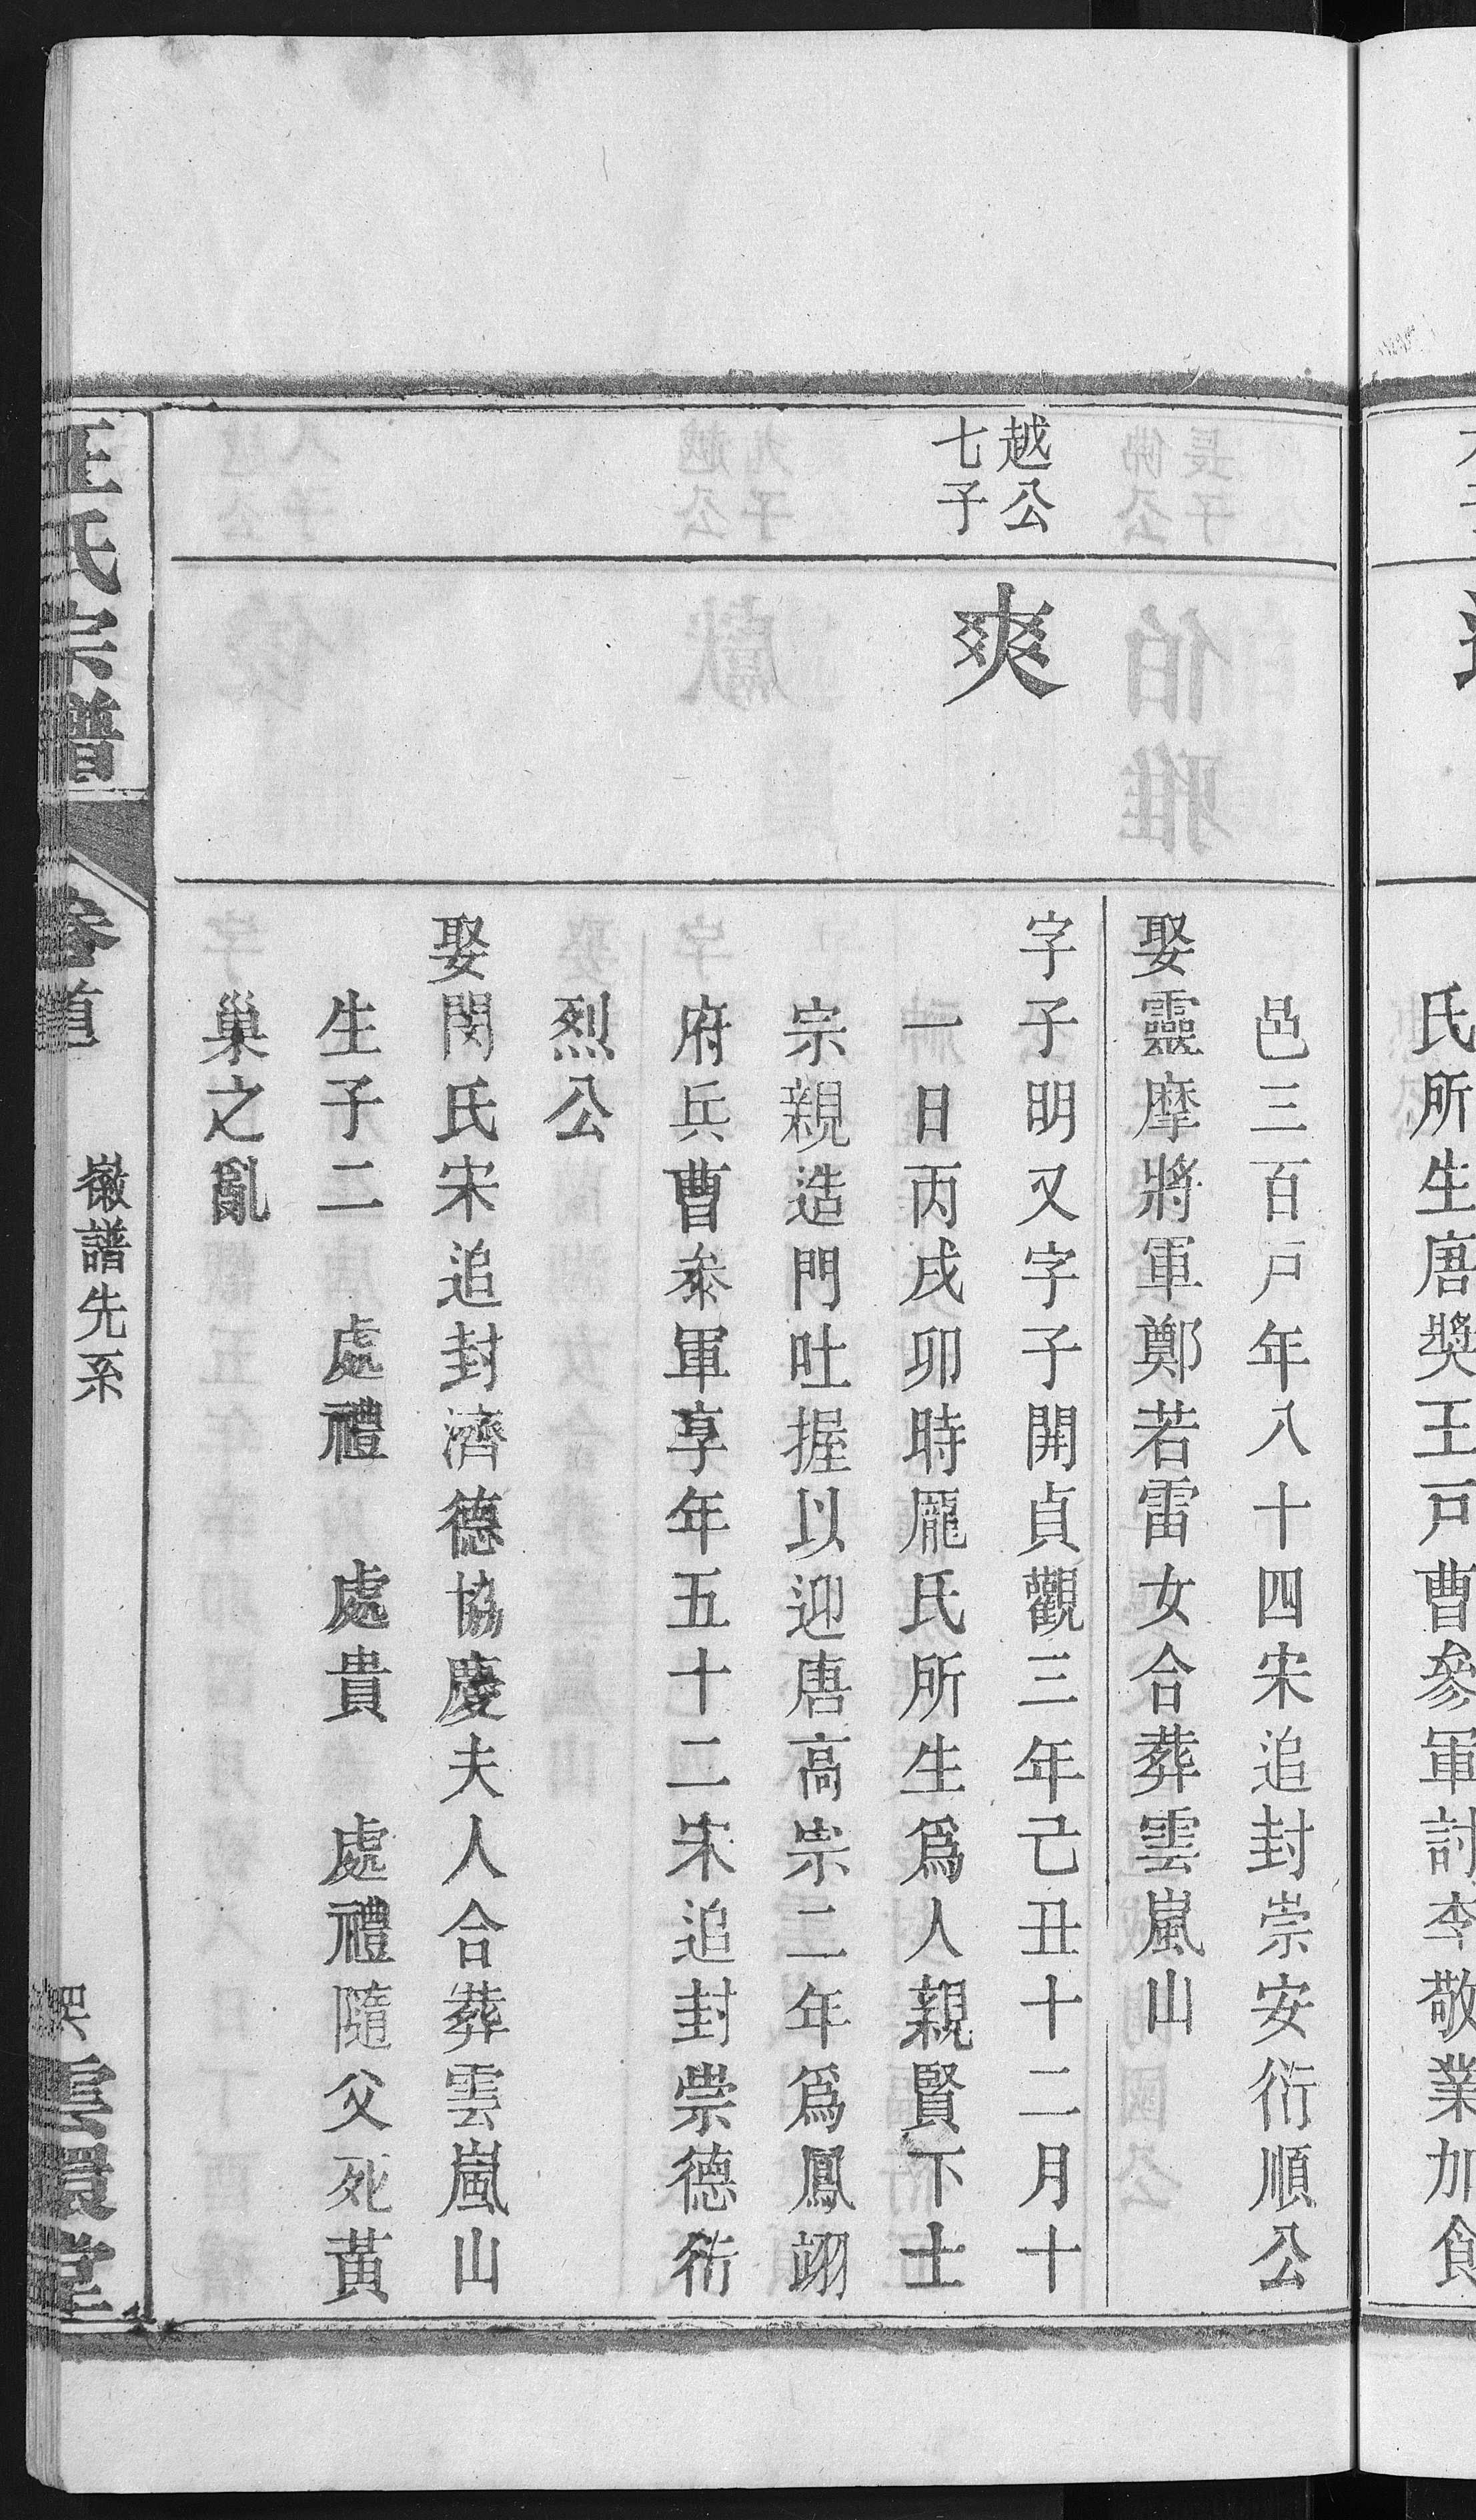 氏所生唐奬王戸曹參軍討李敬業加食
邑三百戸年八十四宋追封崇安衍順公
娶靈摩將軍鄭若雷女合葬雲嵐山
越公
七子
爽
字子明又字子開貞觀三年己丑十二月十
一日丙戌卯時龎氏所生爲人親賢下士
宗親造門吐握以迎唐高宗二年爲鳳翊
府兵曹叅軍享年五十二宋追封崇德衍
烈公
娶閔氏宋追封濟德協慶夫人合葬雲嵐山
生子二 處禮 處貴 處禮隨父死黃
巢之亂
汪氏宗譜
卷首
徽譜先系